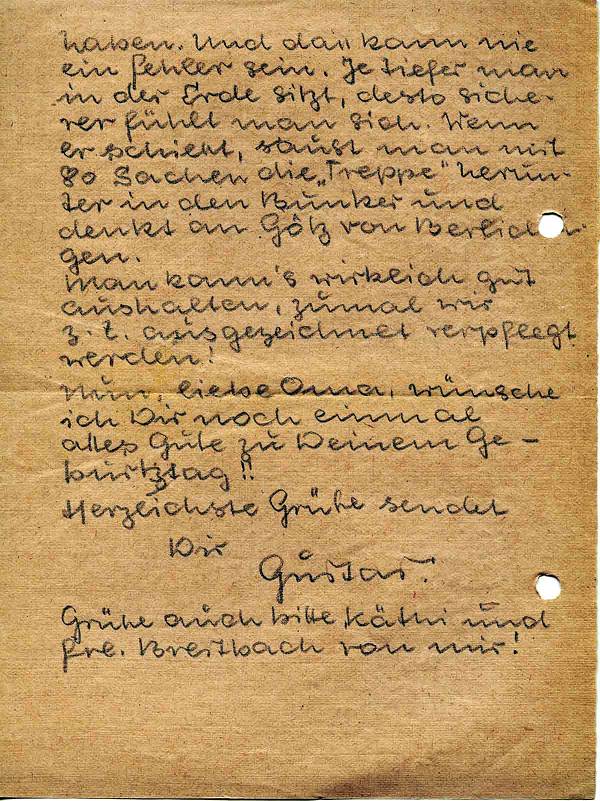 haben. Und das kann nie
ein Fehler sein. Je tiefer man
in der Erde sitzt, desto siche-
rer fühlt man sich. Wenn
er schießt, saust man mit
80 Sachen die „Treppe“ herun-
ter in den Bunker und
denkt an Götz von Berlichin-
gen.
Man kann's wirklich gut
aushalten, zumal wir
z. t. ausgezeichnet verpflegt
werden!
Nun, liebe Oma, wünsche
ich Dir noch einmal
alles Gute zu Deinem Ge-
burtstag!!
Herzlichste Grüße sendet
Dir
Gustav!
Grüße auch bitte Käthi und
Frl. Breitbach von mir!